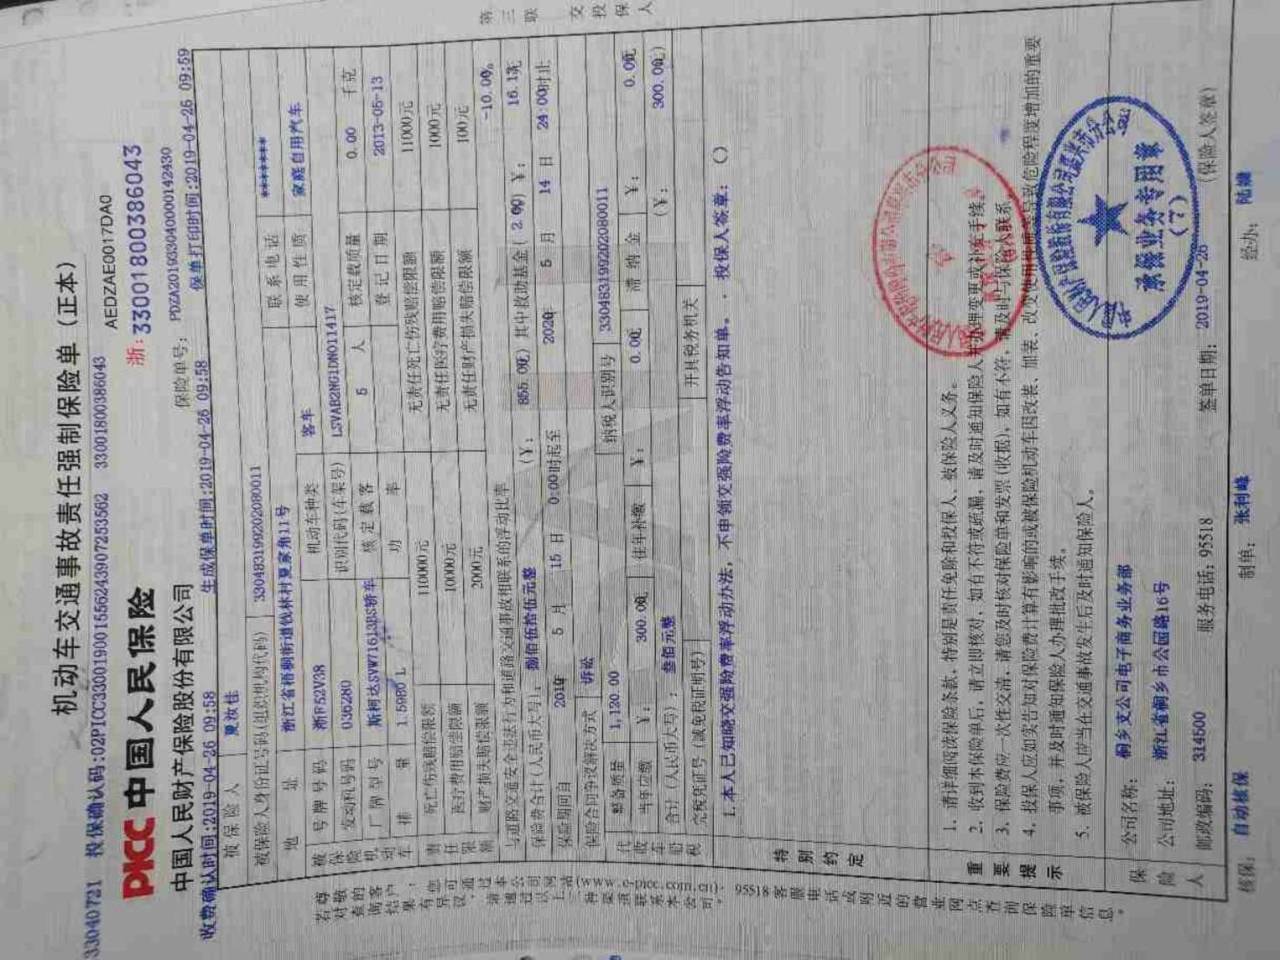 机动车交通事故责任强制保险单 (正本)
33040721 投保确认码:02PICC330019001556243907253562 33001800386043 AEDZAE0017DA0
PICC 中国人民保险 浙: 33001800386043
中国人民财产保险股份有限公司 保险单号: PDZA201933040000142430
收费确认时间:2019-04-26 09:58 生成保单时间:2019-04-26 09:58 保单打印时间:2019-04-26 09:59
被保险人
被保险人身份证号码(组织机构代码) 330483199202080011
地址 浙江省梧桐街道钱林村夏家角11号 联系电话 *******
被保险机动车 号牌号码 浙F52V38 机动车种类 客车 使用性质 家庭自用汽车
发动机号码 036280 识别代码(车架号) LSVAB2NG1DN011417
厂牌型号 斯柯达SVW71613BS轿车 核定载客 5 人 核定载质量 0.00 千克
排量 1.5980 L 功率 登记日期 2013-05-13
责任限额 死亡伤残赔偿限额 110000元 无责任死亡伤残赔偿限额 11000元
医疗费用赔偿限额 10000元 无责任医疗费用赔偿限额 1000元
财产损失赔偿限额 2000元 无责任财产损失赔偿限额 100元
与道路交通安全违法行为和道路交通事故相联系的浮动比率 -10.00%
保险费合计(人民币大写): 捌佰伍拾伍元整 (¥: 855.00元) 其中救助基金( 2.00) ¥: 16.13元
保险期间自 2019 年 5 月 15 日 0:00时起至 2020 年 5 月 14 日 24:00时止
保险合同争议解决方式 诉讼
代收车船税 整备质量 1,120.00 纳税人识别号 330483199202080011
当年应缴 ¥: 300.00元 往年补缴 ¥: 0.00元 滞纳金 ¥: 0.00元
合计 (人民币大写): 叁佰元整 (¥: 300.00元)
完税凭证号 (减免税证明号) 开具税务机关
特别约定
1. 本人已知晓交强险费率浮动办法, 不申领交强险费率浮动告知单。. 投保人签章: ○
重要提示
1. 请详细阅读保险条款, 特别是责任免除和投保人、被保险人义务。
2. 收到本保险单后, 请立即核对, 如有不符或疏漏, 请及时通知保险人并办理变更或补充手续。
3. 保险费应一次性交清, 请您及时核对保险单和发票(收据), 如有不符, 请及时与保险人联系。
4. 投保人应如实告知对保险费计算有影响的或被保险机动车因改装、加装、改变使用性质等导致危险程度增加的重要
事项, 并及时通知保险人办理批改手续。
5. 被保险人应当在交通事故发生后及时通知保险人。
保险人
公司名称: 桐乡支公司电子商务业务部
公司地址: 浙江省桐乡市公园路16号
邮政编码: 314500 服务电话: 95518 签单日期: 2019-04-26 (保险人签章)
核保: 自动核保 制单: 张利峰 经办:
第三联 交投保人
承保业务专用章
(7)